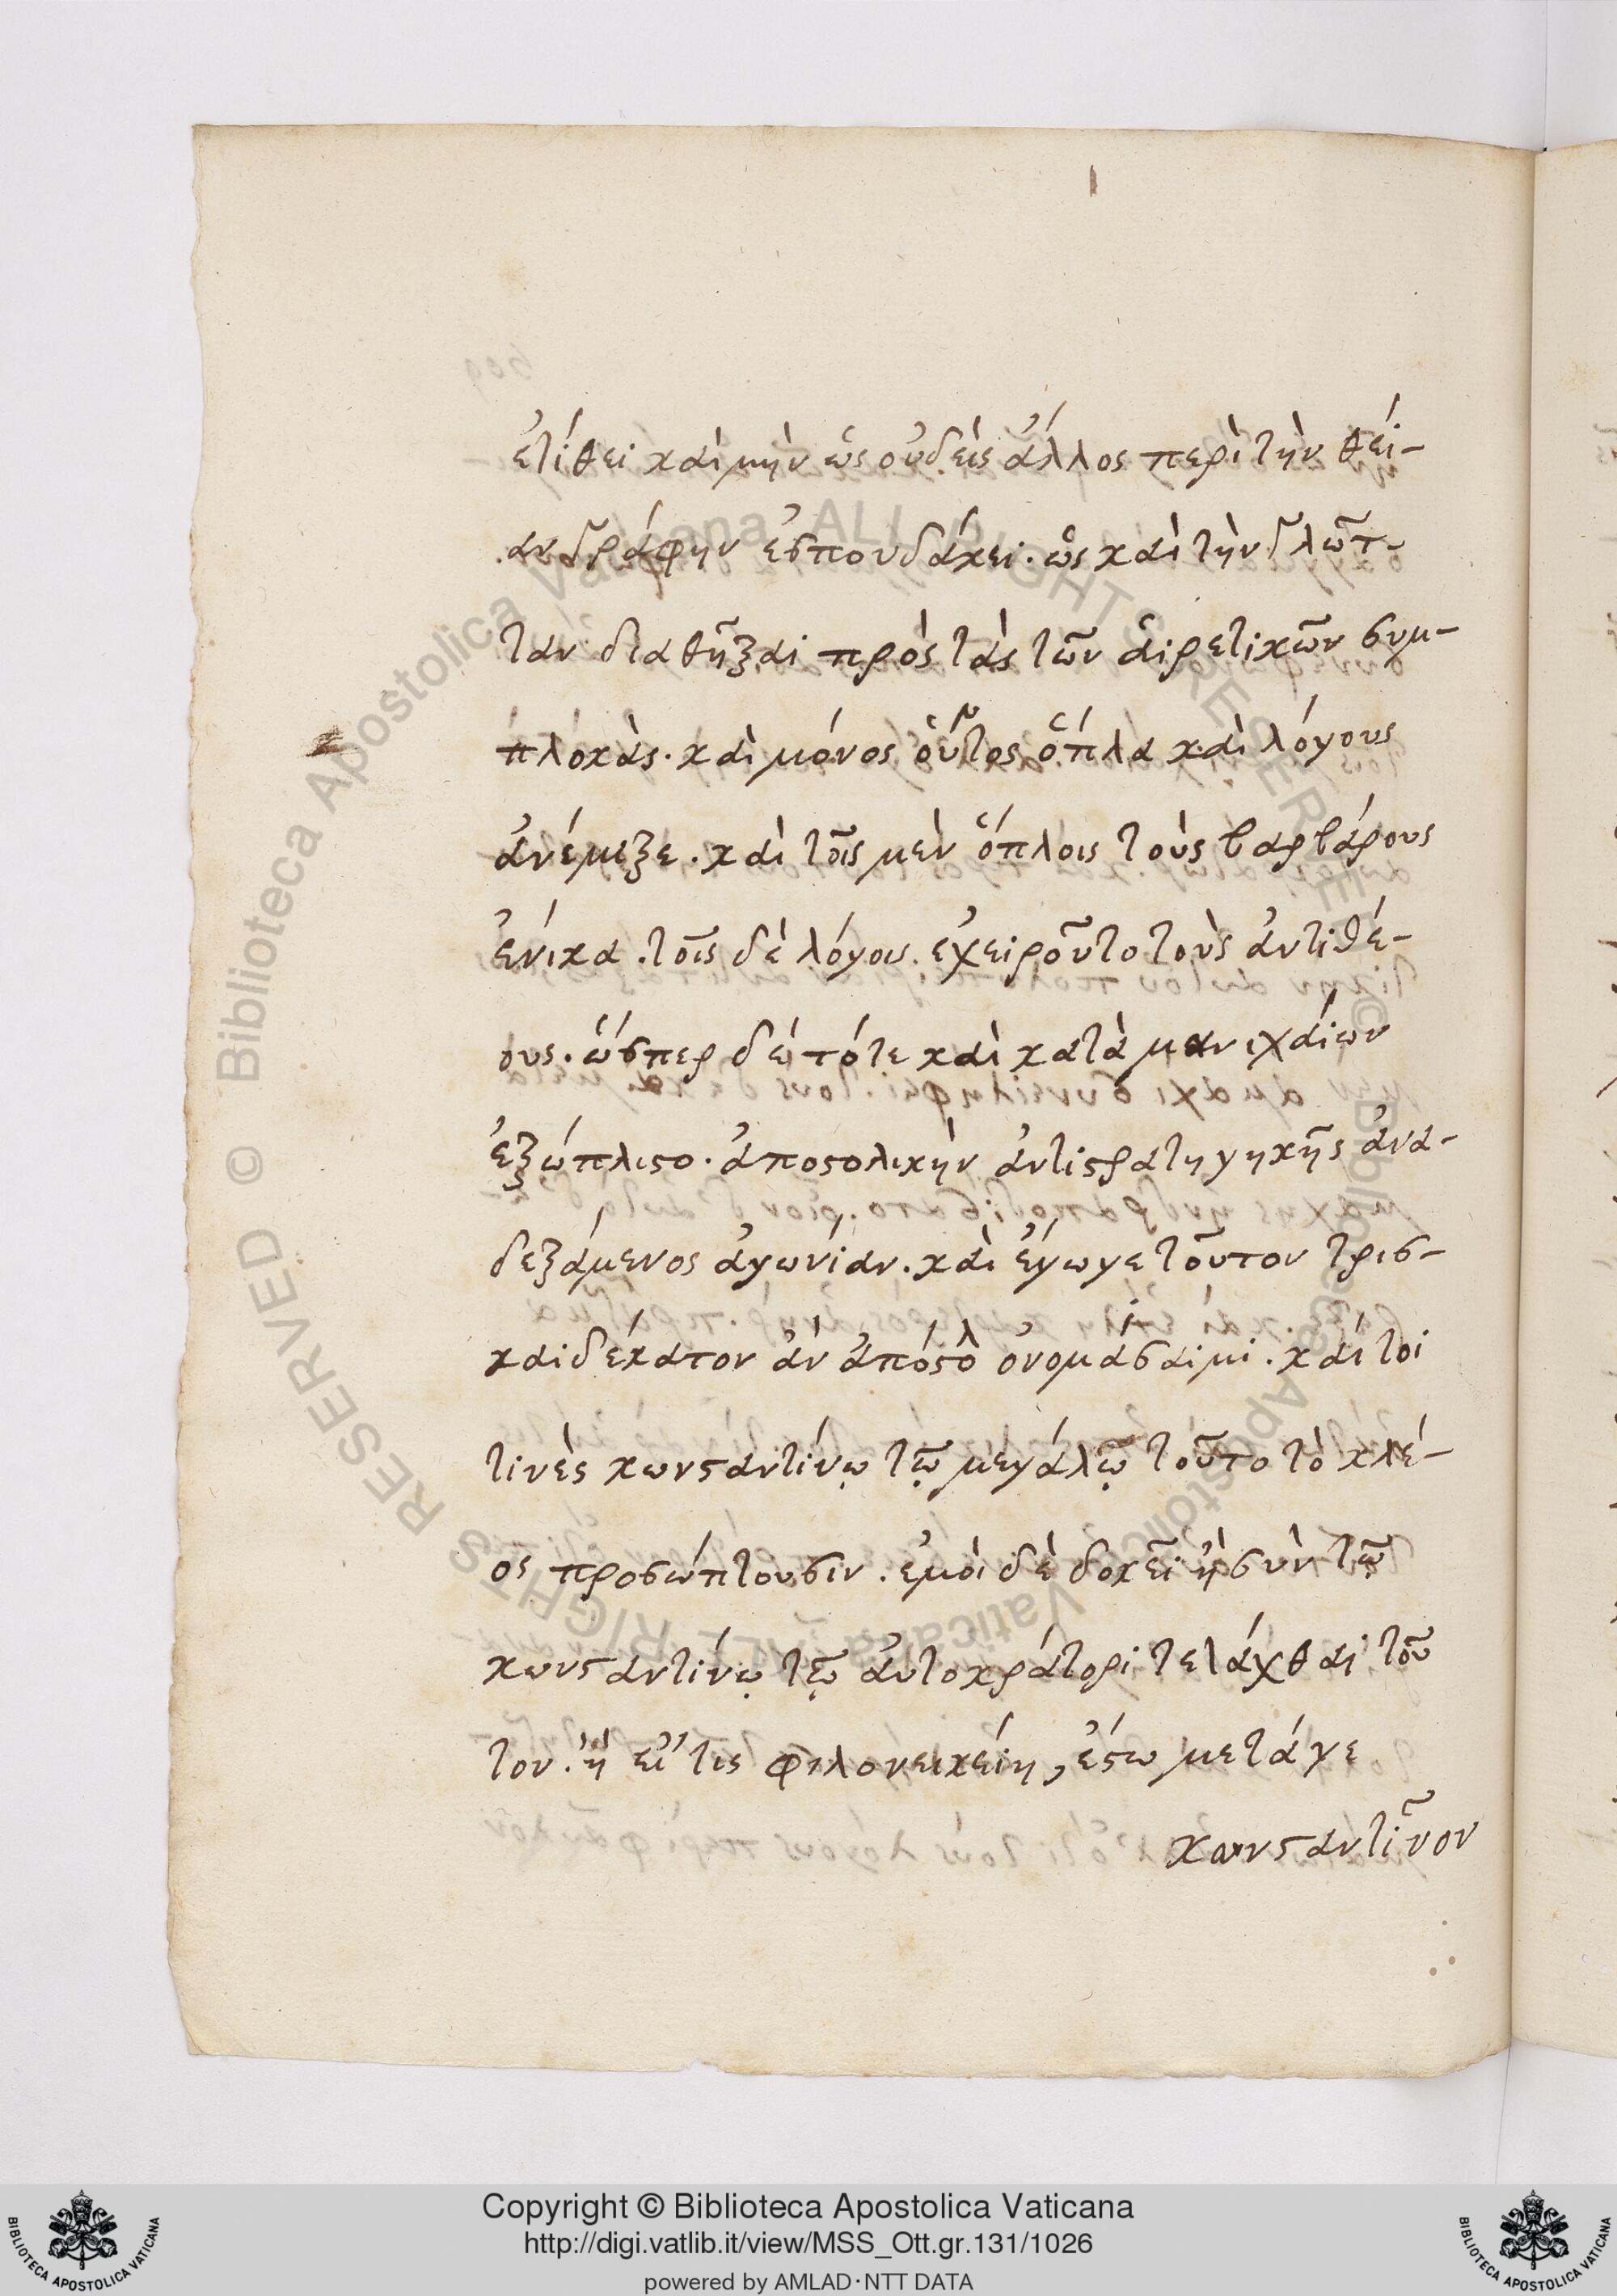 ἐτίθει καὶ μὴν ὡς οὐδεὶς ἄλλος περὶ τὴν θεί-
αν γράφην ἐσπουδάκει. ὡς καὶ τὴν γλῶτ-
ταν διαθῆξαι πρὸς τὰς τῶν αἱρετικῶν συμ-
πλοκὰς. καὶ μόνος οὗτος ὅπλα καὶ λόγους
ἀνέμιξε. καὶ τοῖς μὲν ὅπλοις τοὺς βαρβάρους
ἐνίκα. τοῖς δὲ λόγοις. ἐχειροῦτο τοὺς ἀντιθέ-
ους. ὥσπερ δὲ τότε καὶ κατὰ μανιχαίων
ἐξώπλιστο. ἀποστολικὴν ἀντιστρατηγηκῆς ἀνα-
δεξάμενος ἀγωνίαν. καὶ ἔγωγε τοῦτον τρισ-
καιδέκατον ἂν ἀπόστολ ὀνομάσαιμι. καίτοι
τινὲς κωνσταντίνῳ τῷ μεγάλῳ τοῦτο τὸ κλέ-
ος προσώπτουσιν. ἐμοὶ δὲ δοκεῖ ἢ σὺν τῷ
κωνσταντίνῳ τῷ αὐτοκράτορι τετάχθαι τοῦ
τον. ἢ εἴ τις φιλονεικείη, ἔστω μετάγε
κωνσταντῖνον
Copyright © Biblioteca Apostolica Vaticana
http://digi.vatlib.it/view/MSS_Ott.gr.131/1026
powered by AMLAD·NTT DATA
BIBLIOTECA APOSTOLICA VATICANA
BIBLIOTECA APOSTOLICA VATICANA
© Biblioteca Apostolica Vaticana ALL RIGHTS RESERVED
© Biblioteca Apostolica Vaticana ALL RIGHTS RESERVED